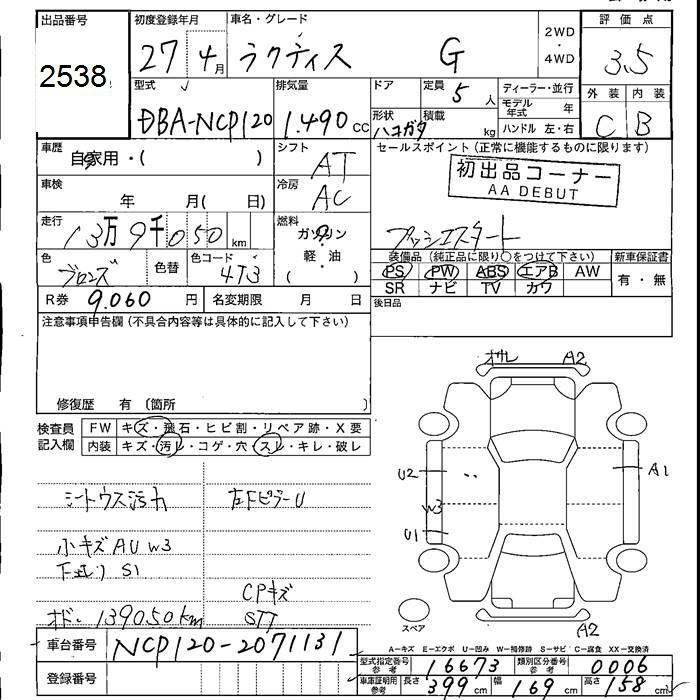 出品番号
2538
初度登録年月
27年4月
車名・グレード
ラクティス G
2WD
・
4WD
評価点
3.5
外装 内装
C B
型式
DBA-NCP120
排気量
1.490 cc
ドア
定員
5 人
形状
ハコガタ
積載
kg
ディーラー・並行
モデル年式 年
ハンドル 左・右
車歴
自家用・( )
シフト
AT
セールスポイント(正常に機能するものに限ります)
初出品コーナー
AA DEBUT
プッシュスタート
車検
年 月( 日)
冷房
AC
走行
13万9千050 km
燃料
ガソリン
・
軽・油
( )
色
ブロンズ
色替
色コード
4T3
装備品(純正品に限り○をつけて下さい)
新車保証書
PS PW ABS エアB AW
SR ナビ TV カワ
有・無
R券 9.060 円
名変期限 月 日
後日品
注意事項申告欄(不具合内容等は具体的に記入して下さい)
修復歴 有 〔箇所 〕
検査員記入欄
FW キズ・飛石・ヒビ割・リペア跡・X要
内装 キズ・汚レ・コゲ・穴・スレ・キレ・破レ
シートウス汚れ
左FピラーU
小キズ AU W3
下廻り S1
CPキズ
オド. 139050km
STT
オサレ
A2
U2
A1
W3
U1
スペア
A2
A-キズ E-エクボ U-凹み W-補修跡 S-サビ C-腐食 XX-交換済
車台番号
NCP120-2071131
登録番号
型式指定番号 参考
16673
類別区分番号 参考
0006
車庫証明用 参考
長さ 399 cm
幅 169 cm
高さ 158 cm